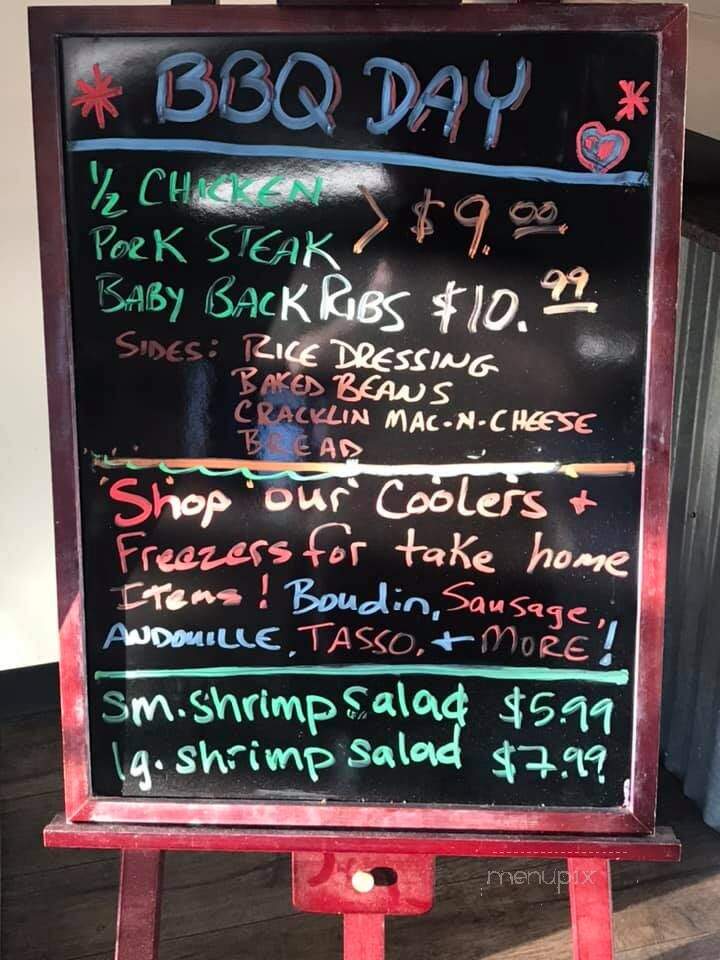 BBQ DAY
1/2 CHICKEN
PORK STEAK > $9.00
BABY BACK RIBS $10.99
SIDES: RICE DRESSING
BAKED BEANS
CRACKLIN MAC-N-CHEESE
BREAD
Shop our Coolers +
Freezers for take home
Items! Boudin, Sausage,
ANDOUILLE, TASSO, + MORE!
Sm. Shrimp Salad $5.99
lg. shrimp salad $7.99
menupix